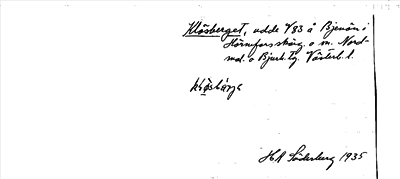 Klösberget, udde V83 å Bjenön i
Hörneforsskärg. o m. Nord-
mal. o Bjurh. tg. Västerb. l.
klösbärje
H A Söderberg 1935